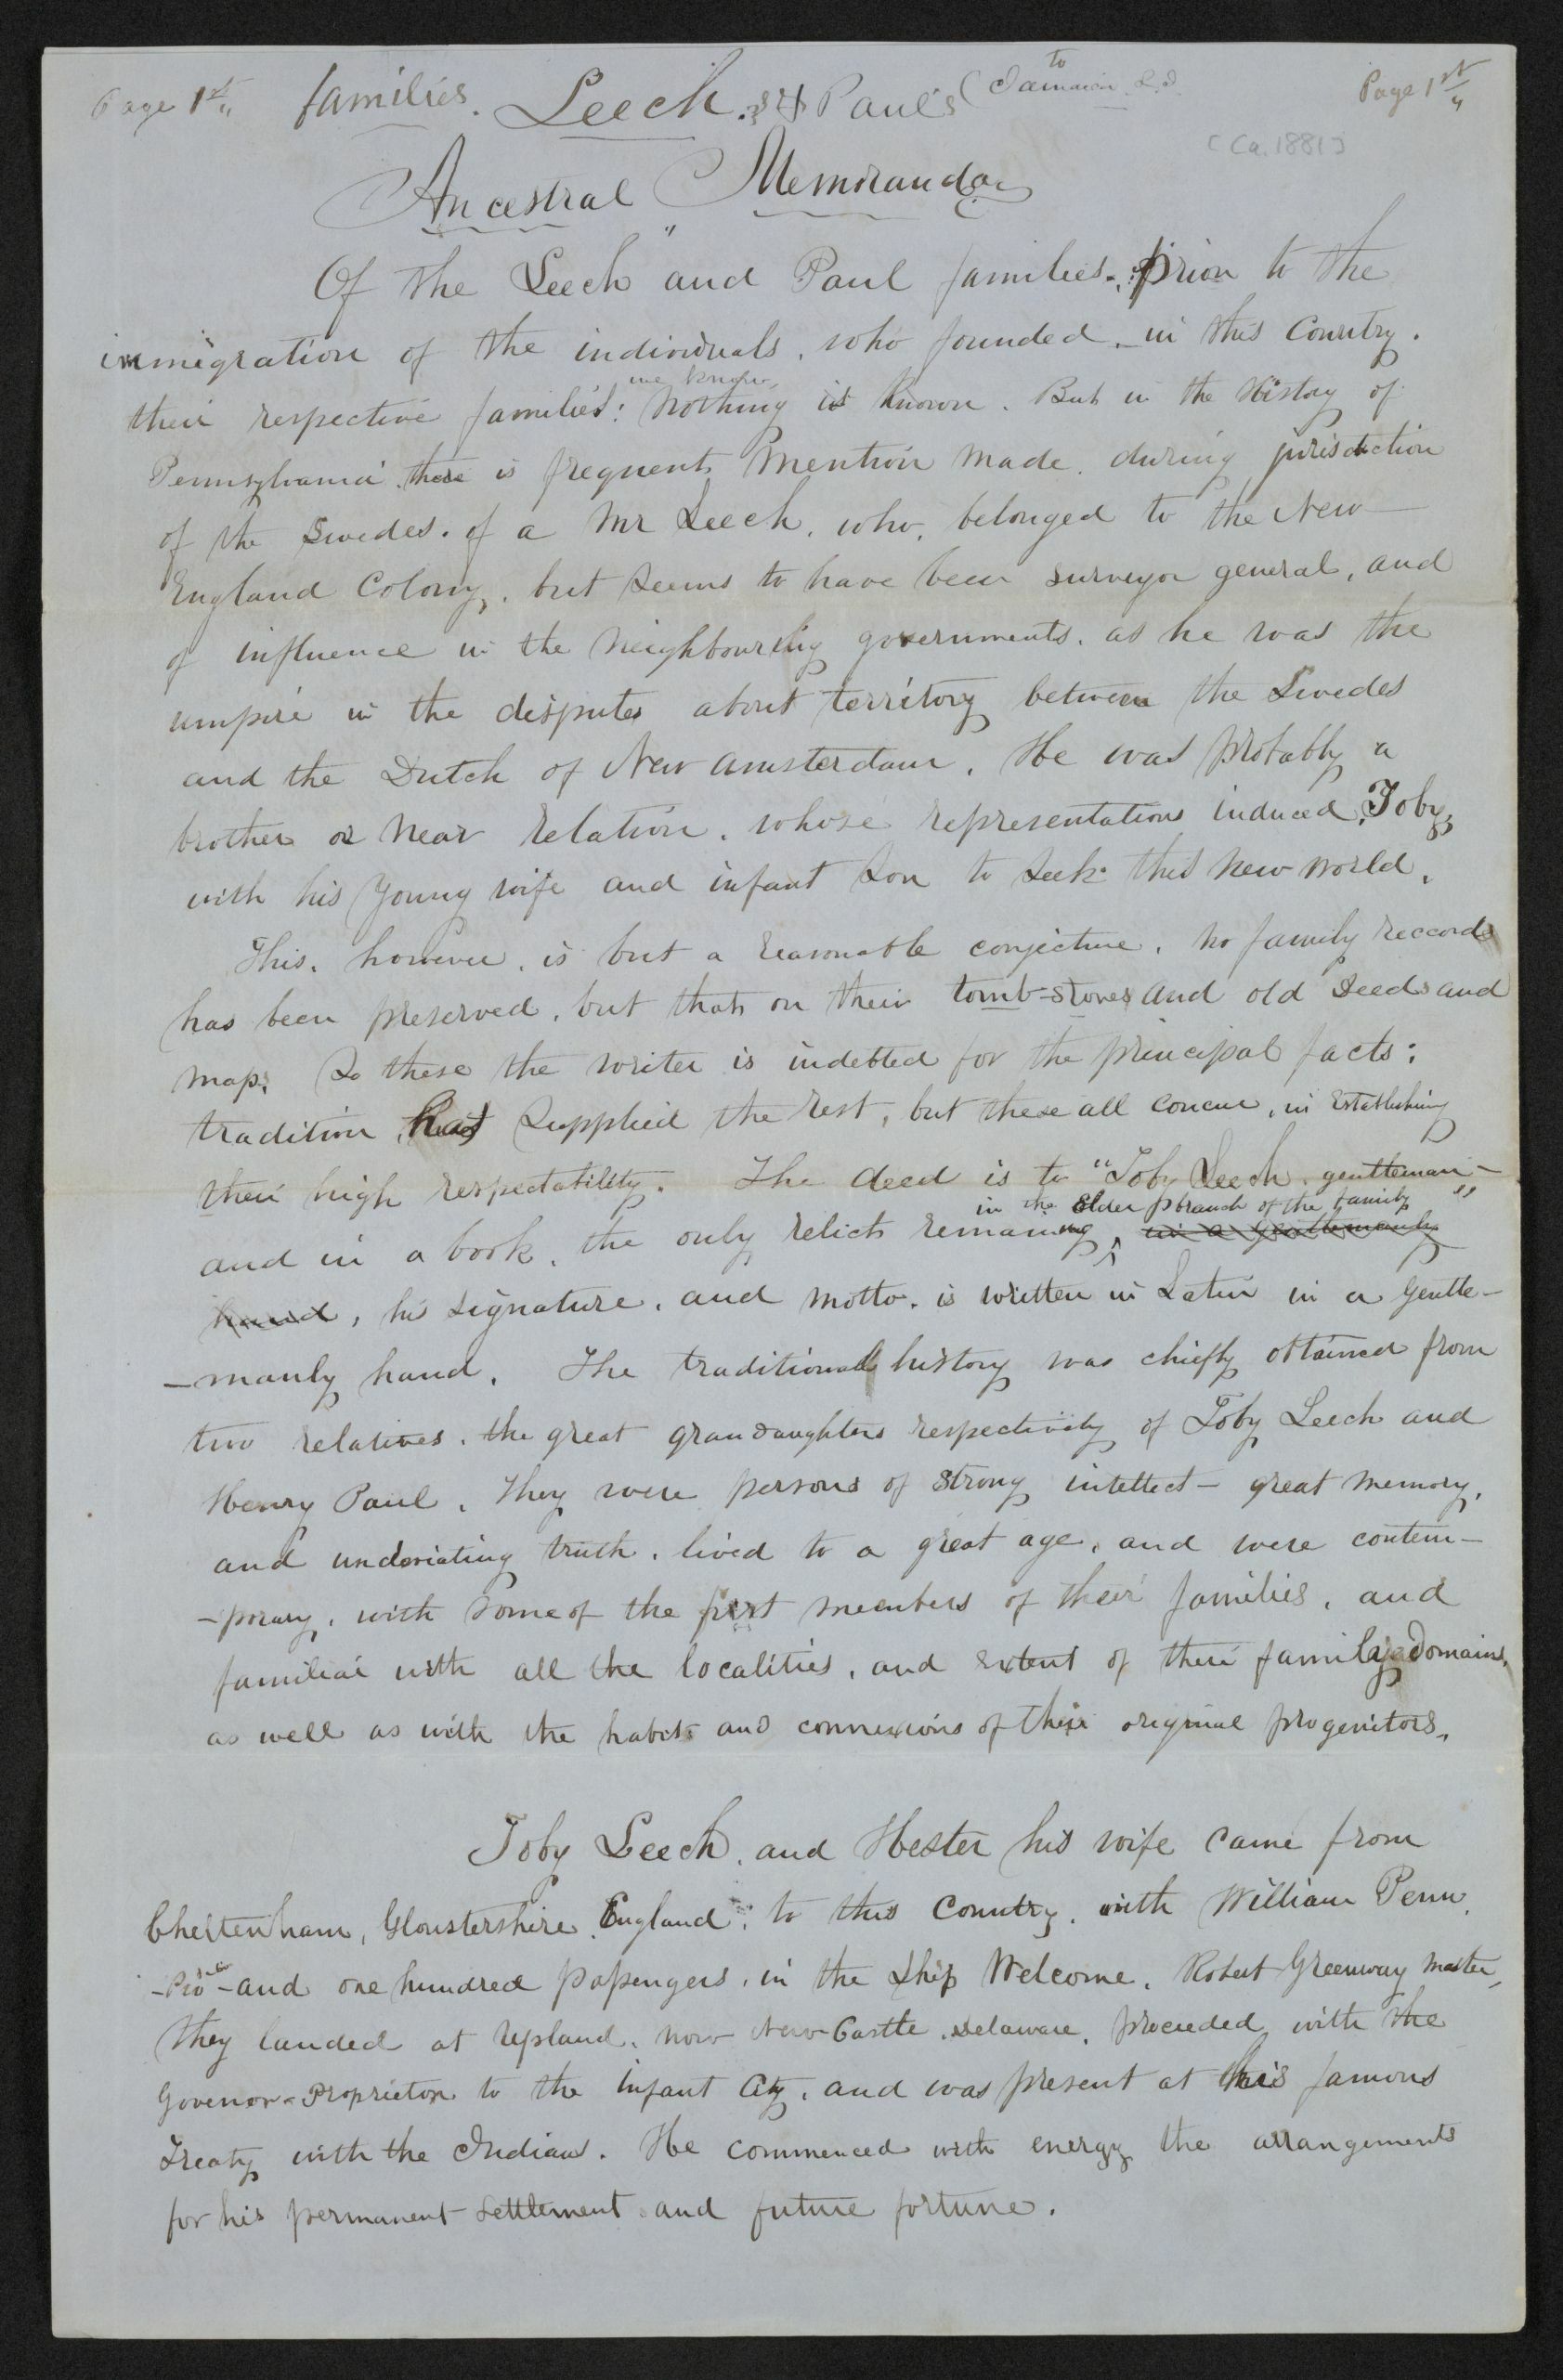 Page 1st families. Leech. & Paul's ( to Jamaica L.I. Page 1st
[Ca. 1881]
Ancestral Memoranda
Of the Leech and Paul families. prior to the
immigration of the individuals, who founded in this Country.
their respective families: we know nothing is known. But in the History of
Pennsylvania there is frequent mention made. during jurisdiction
of the Swedes. of a Mr Leech, who, belonged to the New
England Colony, but seems to have been surveyor general, and
of influence in the neighbouring governments. as he was the
umpire in the disputes about territory between the Swedes
and the Dutch of New Amsterdam. He was probably a
brother or near relation. whose representations induced Toby,
with his young wife and infant son to seek this new world.
This. however, is but a reasonable conjecture. no family reccords
has been preserved, but that on their tomb-stones and old Deeds and
maps. To these the writer is indebted for the principal facts:
tradition, has supplied the rest, but these all concur, in establishing
their high respectability. The deed is to "Toby Leech, gentleman-"
and in a book, the only relict remaining, in the elder branch of the family in a gentlemanly
hand, his signature, and motto. is written in Latin in a gentle-
-manly hand. The traditional history was chiefly obtained from
two relatives. the great grandaughters respectively of Toby Leech and
Henry Paul. They were persons of strong intellect - great memory,
and undeviating truth. lived to a great age, and were contem-
-porary, with some of the first members of their families, and
familiar with all the localities, and extent of their family domains,
as well as with the habits and connexions of their original progenitors.
Toby Leech, and Hester his wife came from
Cheltenham, Gloustershire, England, to this Country, with William Penn,
and one hundred passengers, in the ship Welcome. Robert Greenway master,
They landed at Upland, now New Castle, Delaware, proceeded with the
Govenor - Proprietor to the infant City, and was present at his famous
Treaty with the Indians. He commenced with energy the arrangements
for his permanent settlement and future fortune.